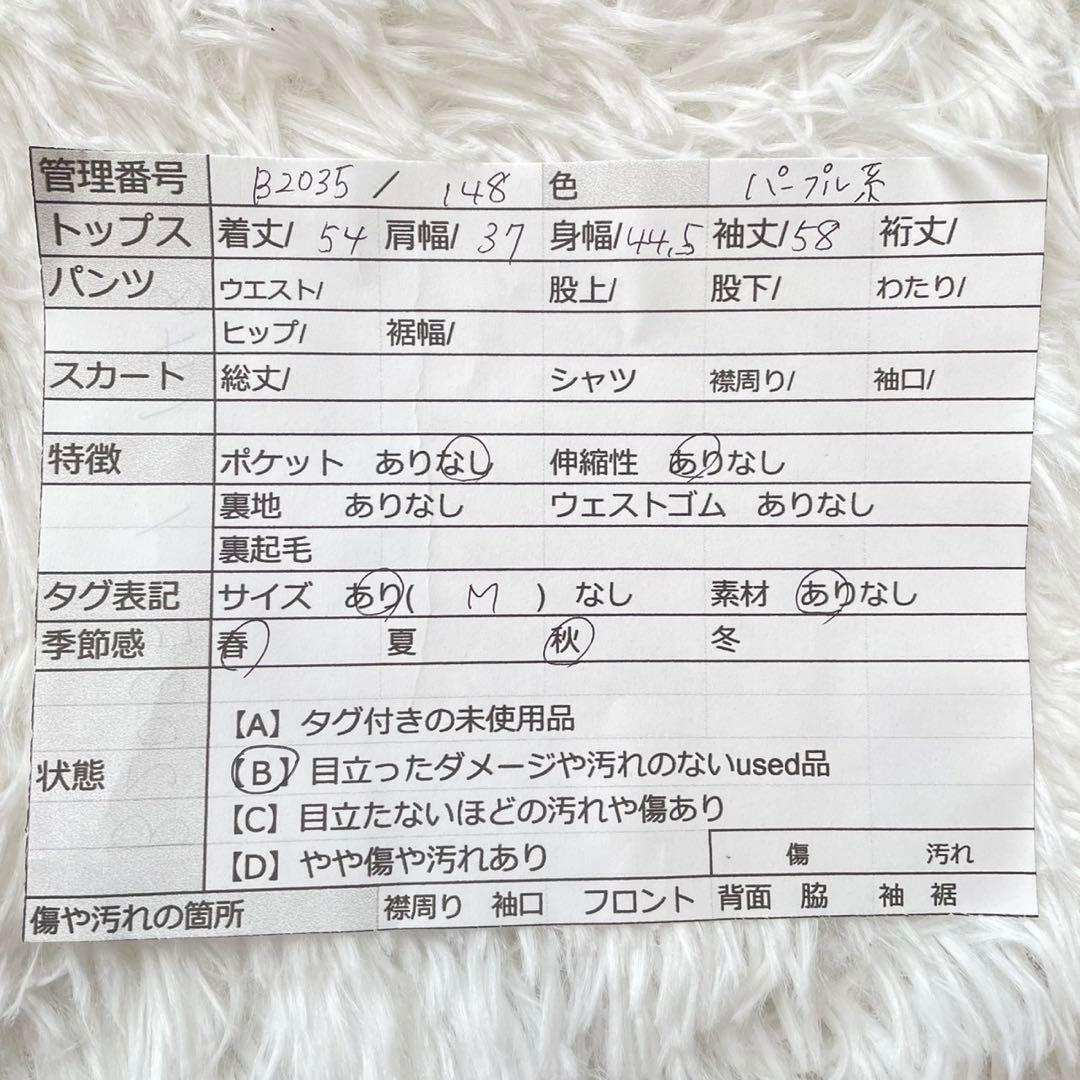 管理番号 B2035 / 148 色 パープル系
トップス 着丈/ 54 肩幅/ 37 身幅/44.5 袖丈/58 裄丈/
パンツ ウエスト/ 股上/ 股下/ わたり/
ヒップ/ 裾幅/
スカート 総丈/ シャツ 襟周り/ 袖口/
特徴 ポケット ありなし 伸縮性 ありなし
裏地 ありなし ウェストゴム ありなし
裏起毛
タグ表記 サイズ あり( M ) なし 素材 ありなし
季節感 春 夏 秋 冬
【A】タグ付きの未使用品
状態 【B】目立ったダメージや汚れのないused品
【C】目立たないほどの汚れや傷あり
【D】やや傷や汚れあり 傷 汚れ
傷や汚れの箇所 襟周り 袖口 フロント 背面 脇 袖 裾